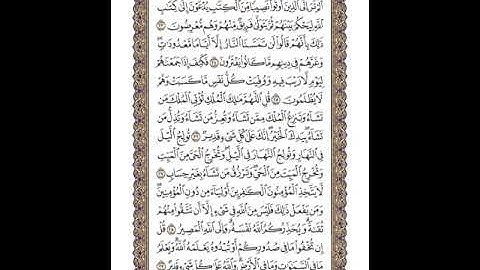 أَلَمْ تَرَ إِلَى ٱلَّذِينَ أُوتُوا۟ نَصِيبًا مِّنَ ٱلْكِتَٰبِ يُدْعَوْنَ إِلَىٰ كِتَٰبِ
ٱللَّهِ لِيَحْكُمَ بَيْنَهُمْ ثُمَّ يَتَوَلَّىٰ فَرِيقٌ مِّنْهُمْ وَهُم مُّعْرِضُونَ ٢٣
ذَٰلِكَ بِأَنَّهُمْ قَالُوا۟ لَن تَمَسَّنَا ٱلنَّارُ إِلَّآ أَيَّامًا مَّعْدُودَٰتٍ
وَغَرَّهُمْ فِى دِينِهِم مَّا كَانُوا۟ يَفْتَرُونَ ٢٤ فَكَيْفَ إِذَا جَمَعْنَٰهُمْ
لِيَوْمٍ لَّا رَيْبَ فِيهِ وَوُفِّيَتْ كُلُّ نَفْسٍ مَّا كَسَبَتْ وَهُمْ
لَا يُظْلَمُونَ ٢٥ قُلِ ٱللَّهُمَّ مَٰلِكَ ٱلْمُلْكِ تُؤْتِى ٱلْمُلْكَ مَن
تَشَآءُ وَتَنزِعُ ٱلْمُلْكَ مِمَّن تَشَآءُ وَتُعِزُّ مَن تَشَآءُ وَتُذِلُّ مَن
تَشَآءُ بِيَدِكَ ٱلْخَيْرُ إِنَّكَ عَلَىٰ كُلِّ شَىْءٍ قَدِيرٌ ٢٦ تُولِجُ ٱلَّيْلَ
فِى ٱلنَّهَارِ وَتُولِجُ ٱلنَّهَارَ فِى ٱلَّيْلِ وَتُخْرِجُ ٱلْحَىَّ مِنَ ٱلْمَيِّتِ
وَتُخْرِجُ ٱلْمَيِّتَ مِنَ ٱلْحَىِّ وَتَرْزُقُ مَن تَشَآءُ بِغَيْرِ حِسَابٍ ٢٧
لَّا يَتَّخِذِ ٱلْمُؤْمِنُونَ ٱلْكَٰفِرِينَ أَوْلِيَآءَ مِن دُونِ ٱلْمُؤْمِنِينَ
وَمَن يَفْعَلْ ذَٰلِكَ فَلَيْسَ مِنَ ٱللَّهِ فِى شَىْءٍ إِلَّآ أَن تَتَّقُوا۟ مِنْهُمْ
تُقَىٰةً وَيُحَذِّرُكُمُ ٱللَّهُ نَفْسَهُۥ وَإِلَى ٱللَّهِ ٱلْمَصِيرُ ٢٨ قُلْ
إِن تُخْفُوا۟ مَا فِى صُدُورِكُمْ أَوْ تُبْدُوهُ يَعْلَمْهُ ٱللَّهُ وَيَعْلَمُ
مَا فِى ٱلسَّمَٰوَٰتِ وَمَا فِى ٱلْأَرْضِ وَٱللَّهُ عَلَىٰ كُلِّ شَىْءٍ قَدِيرٌ ٢٩